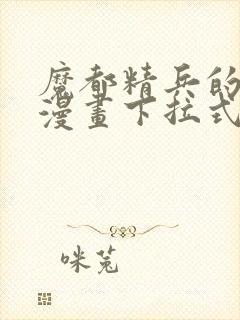 魔都精兵的
漫畫下拉式
咪兎